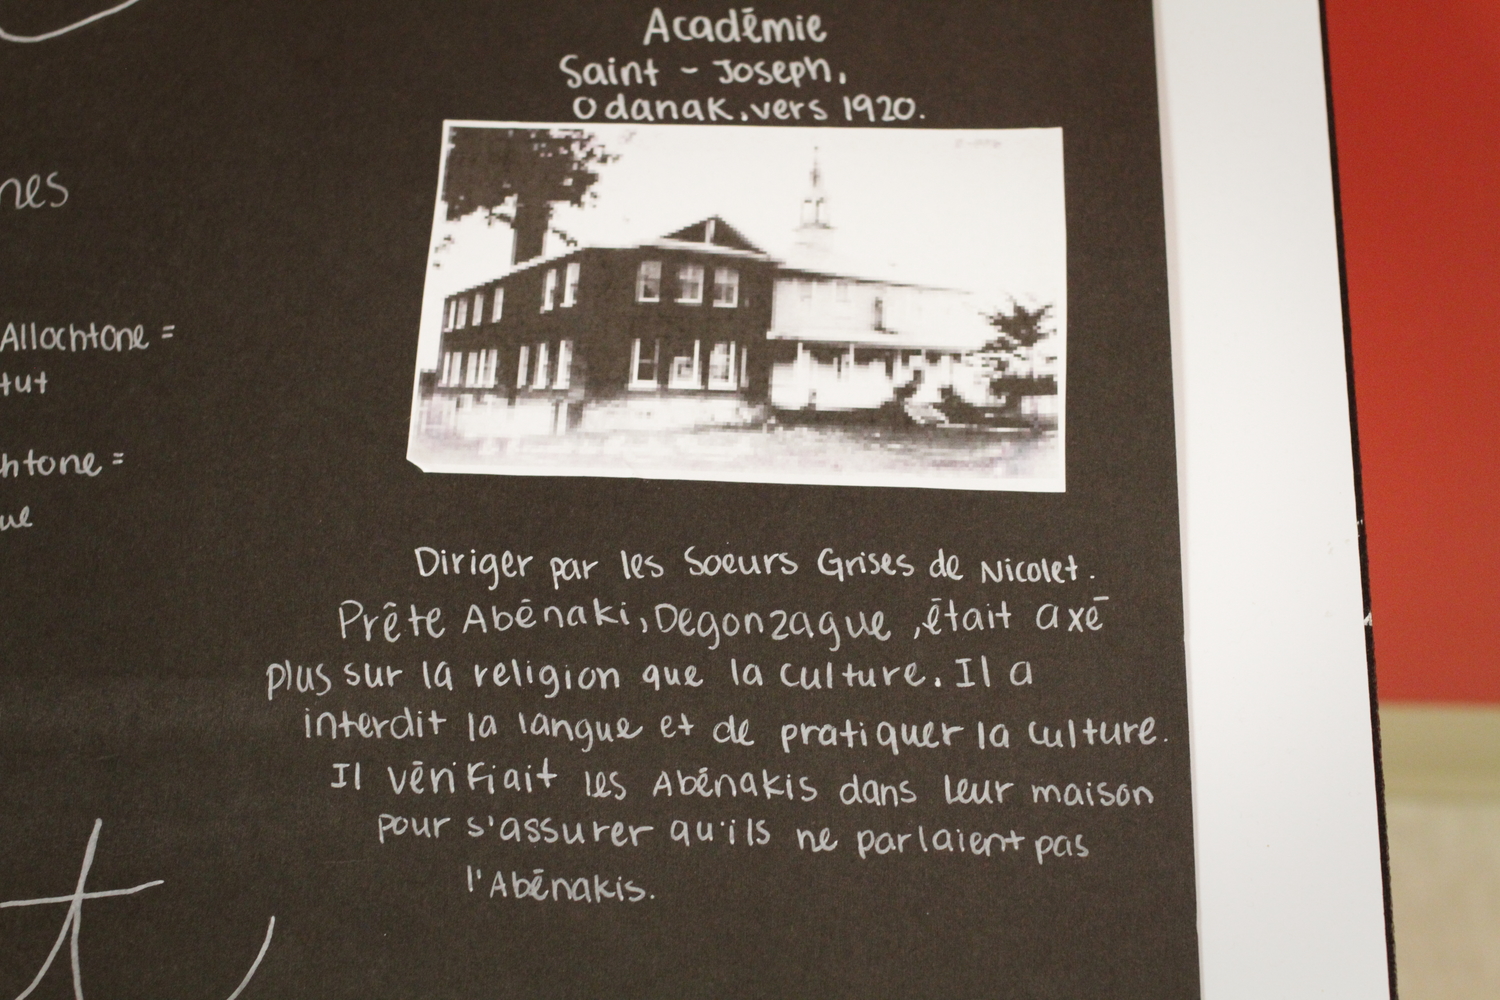 Académie
Saint - Joseph,
Odanak, vers 1920.
nes
Allochtone =
tut
htone =
ue
Diriger par les Soeurs Grises de Nicolet.
Prête Abénaki, Degonzague, était axé
plus sur la religion que la culture. Il a
interdit la langue et de pratiquer la culture.
Il vérifiait les Abénakis dans leur maison
pour s'assurer qu'ils ne parlaient pas
l'Abénakis.
t